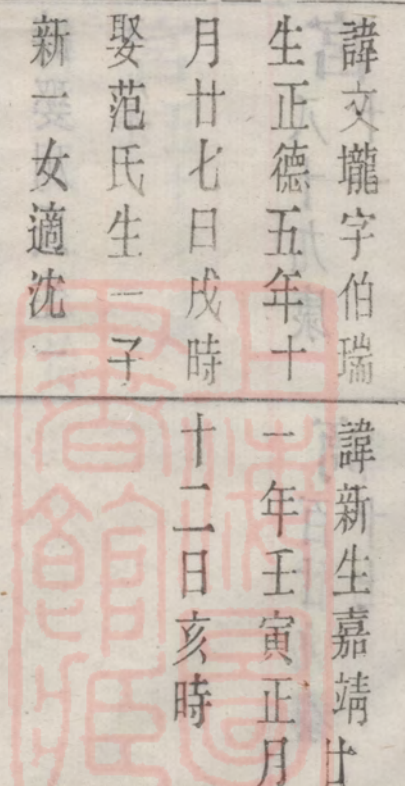 諱文壠字伯瑞
生正德五年十
月廿七日戌時
娶范氏生一子
新一女適沈
諱新生嘉靖廿
一年壬寅正月
十二日亥時
上海圖書館藏